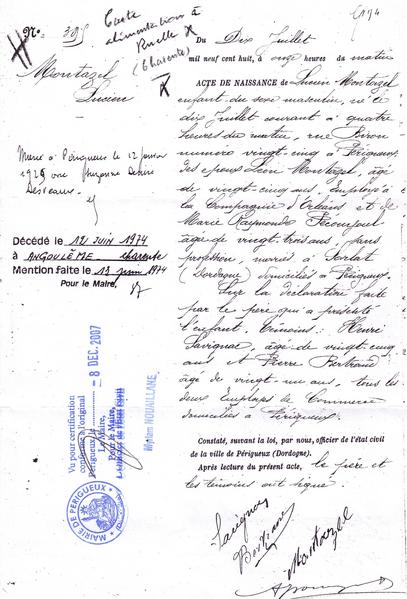 N° 395
Carte
alimentation à
Ruelle
(Charente)
Montazel
Lucien
Marié à Périgueux le 12 janvier
1929 avec Suzanne
Desveaux
Décédé le 12 JUIN 1974
à ANGOULÊME - charente
Mention faite le 13 juin 1974
Pour le Maire,
Vu pour certification
conforme à l'original
Périgueux, le - 8 DEC. 2007
Le Maire,
Pour le Maire,
Myriam NOUAILLANE
MAIRIE DE PERIGUEUX
Du Dix Juillet
mil neuf cent huit, à onze heures du matin
ACTE DE NAISSANCE de Lucien Montazel
enfant du sexe masculin, né le
dix Juillet courant à quatre
heures du matin, rue Biron
numéro vingt-cinq à Périgueux,
des époux Léon Montazel, âgé
de vingt-cinq ans, Employé à
la Compagnie d'Orléans et de
Marie Raymonde
âgée de vingt-trois ans, sans
profession, mariés à Sarlat
(Dordogne) domiciliés à Périgueux.
Sur la déclaration faite
par le père qui a présenté
l'enfant. Témoins: Henri
Lavignac, âgé de vingt-cinq
ans et Pierre Bertrand
âgé de vingt-un ans, tous les
deux employés de Commerce
domiciliés à Périgueux.
Constaté, suivant la loi, par nous, officier de l'état civil
de la ville de Périgueux (Dordogne).
Après lecture du présent acte, le père et
les témoins ont signé.
Lavignac
Bertrand
Montazel